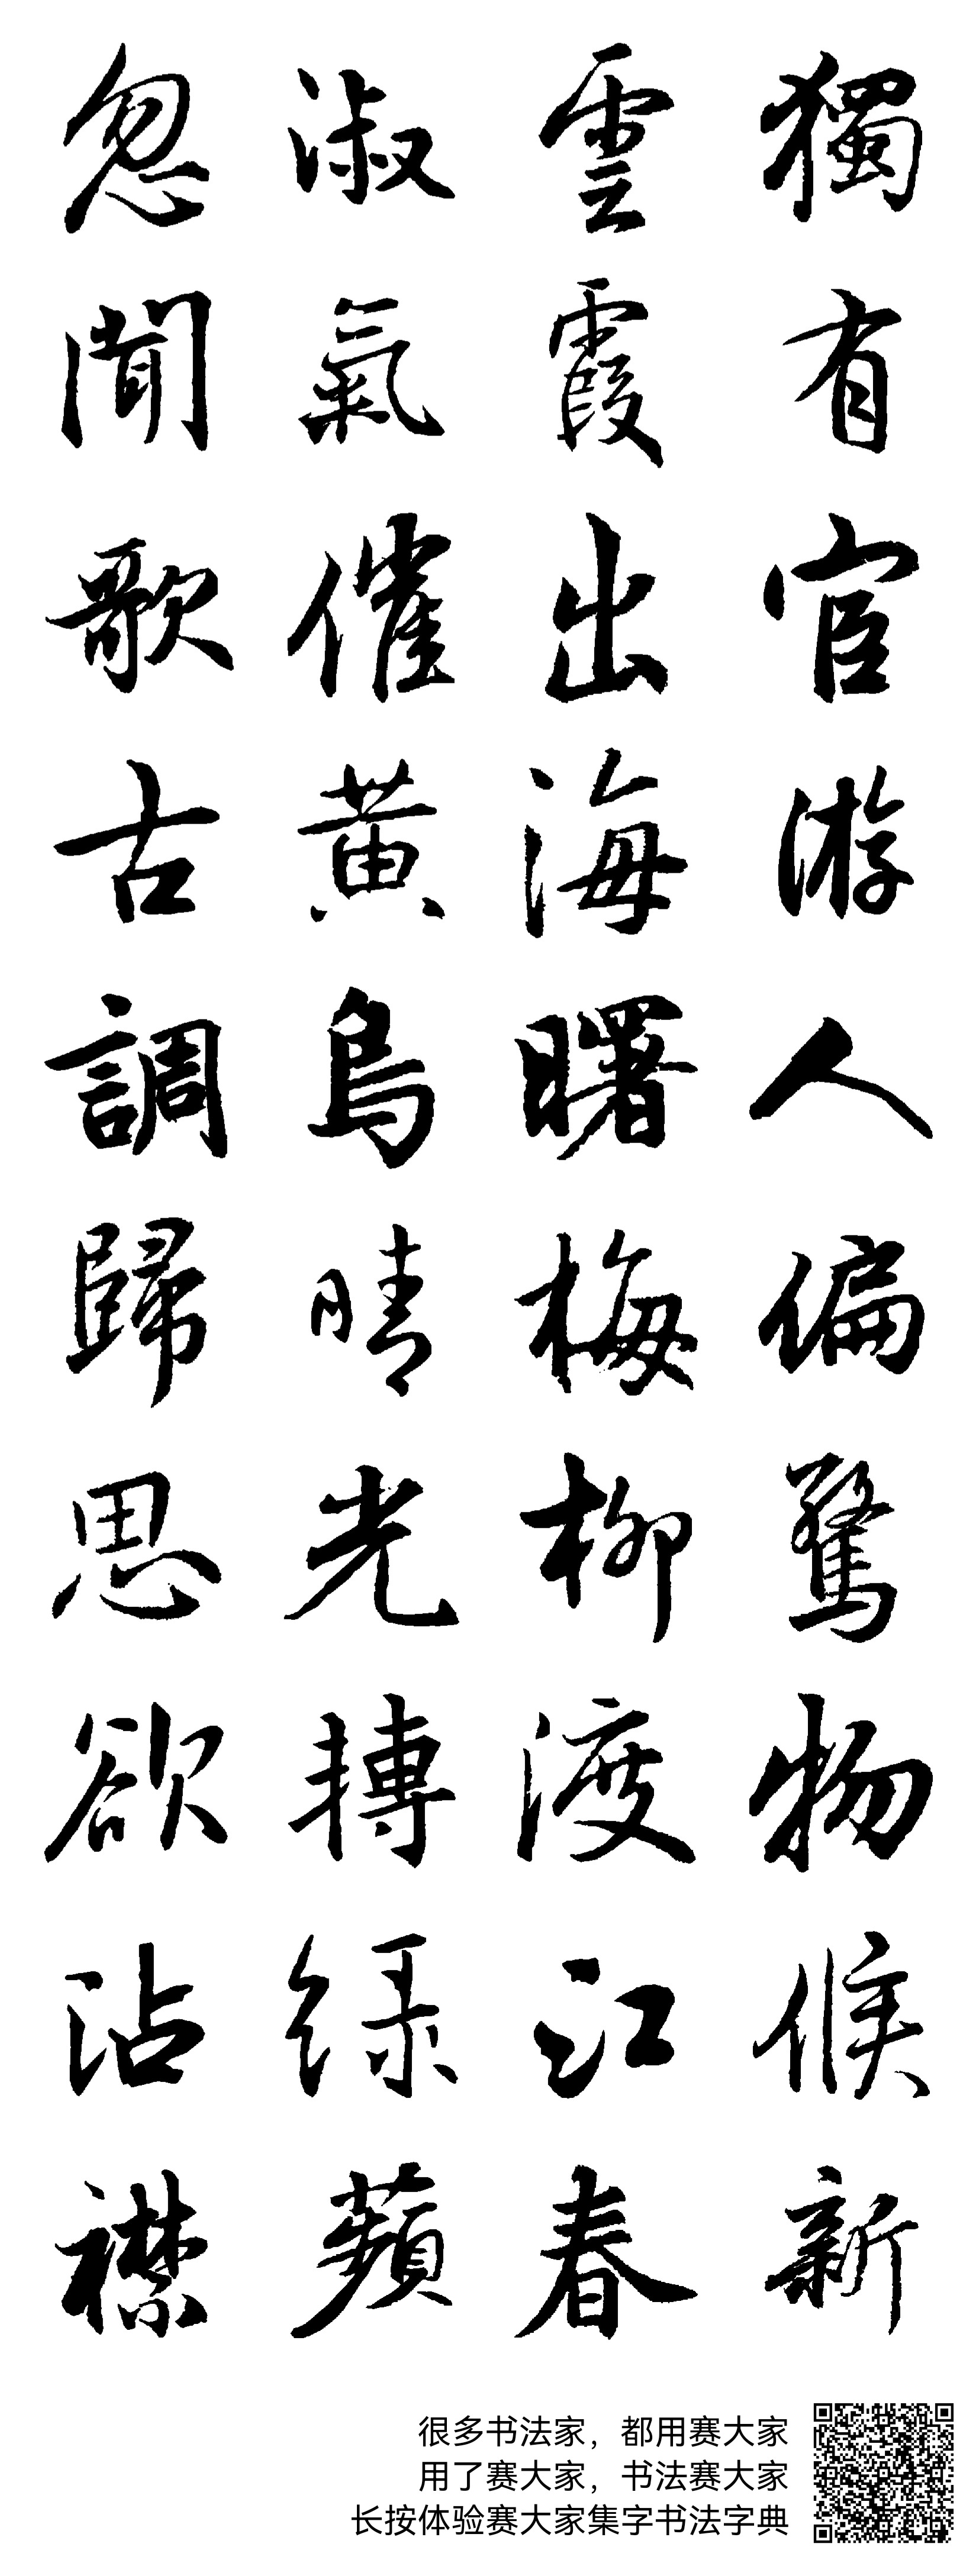 獨有宦游人偏驚物候新
雲霞出海曙梅柳渡江春
淑氣催黃鳥晴光轉緑蘋
忽聞歌古調歸思欲沾襟
很多书法家，都用赛大家
用了赛大家，书法赛大家
长按体验赛大家集字书法字典